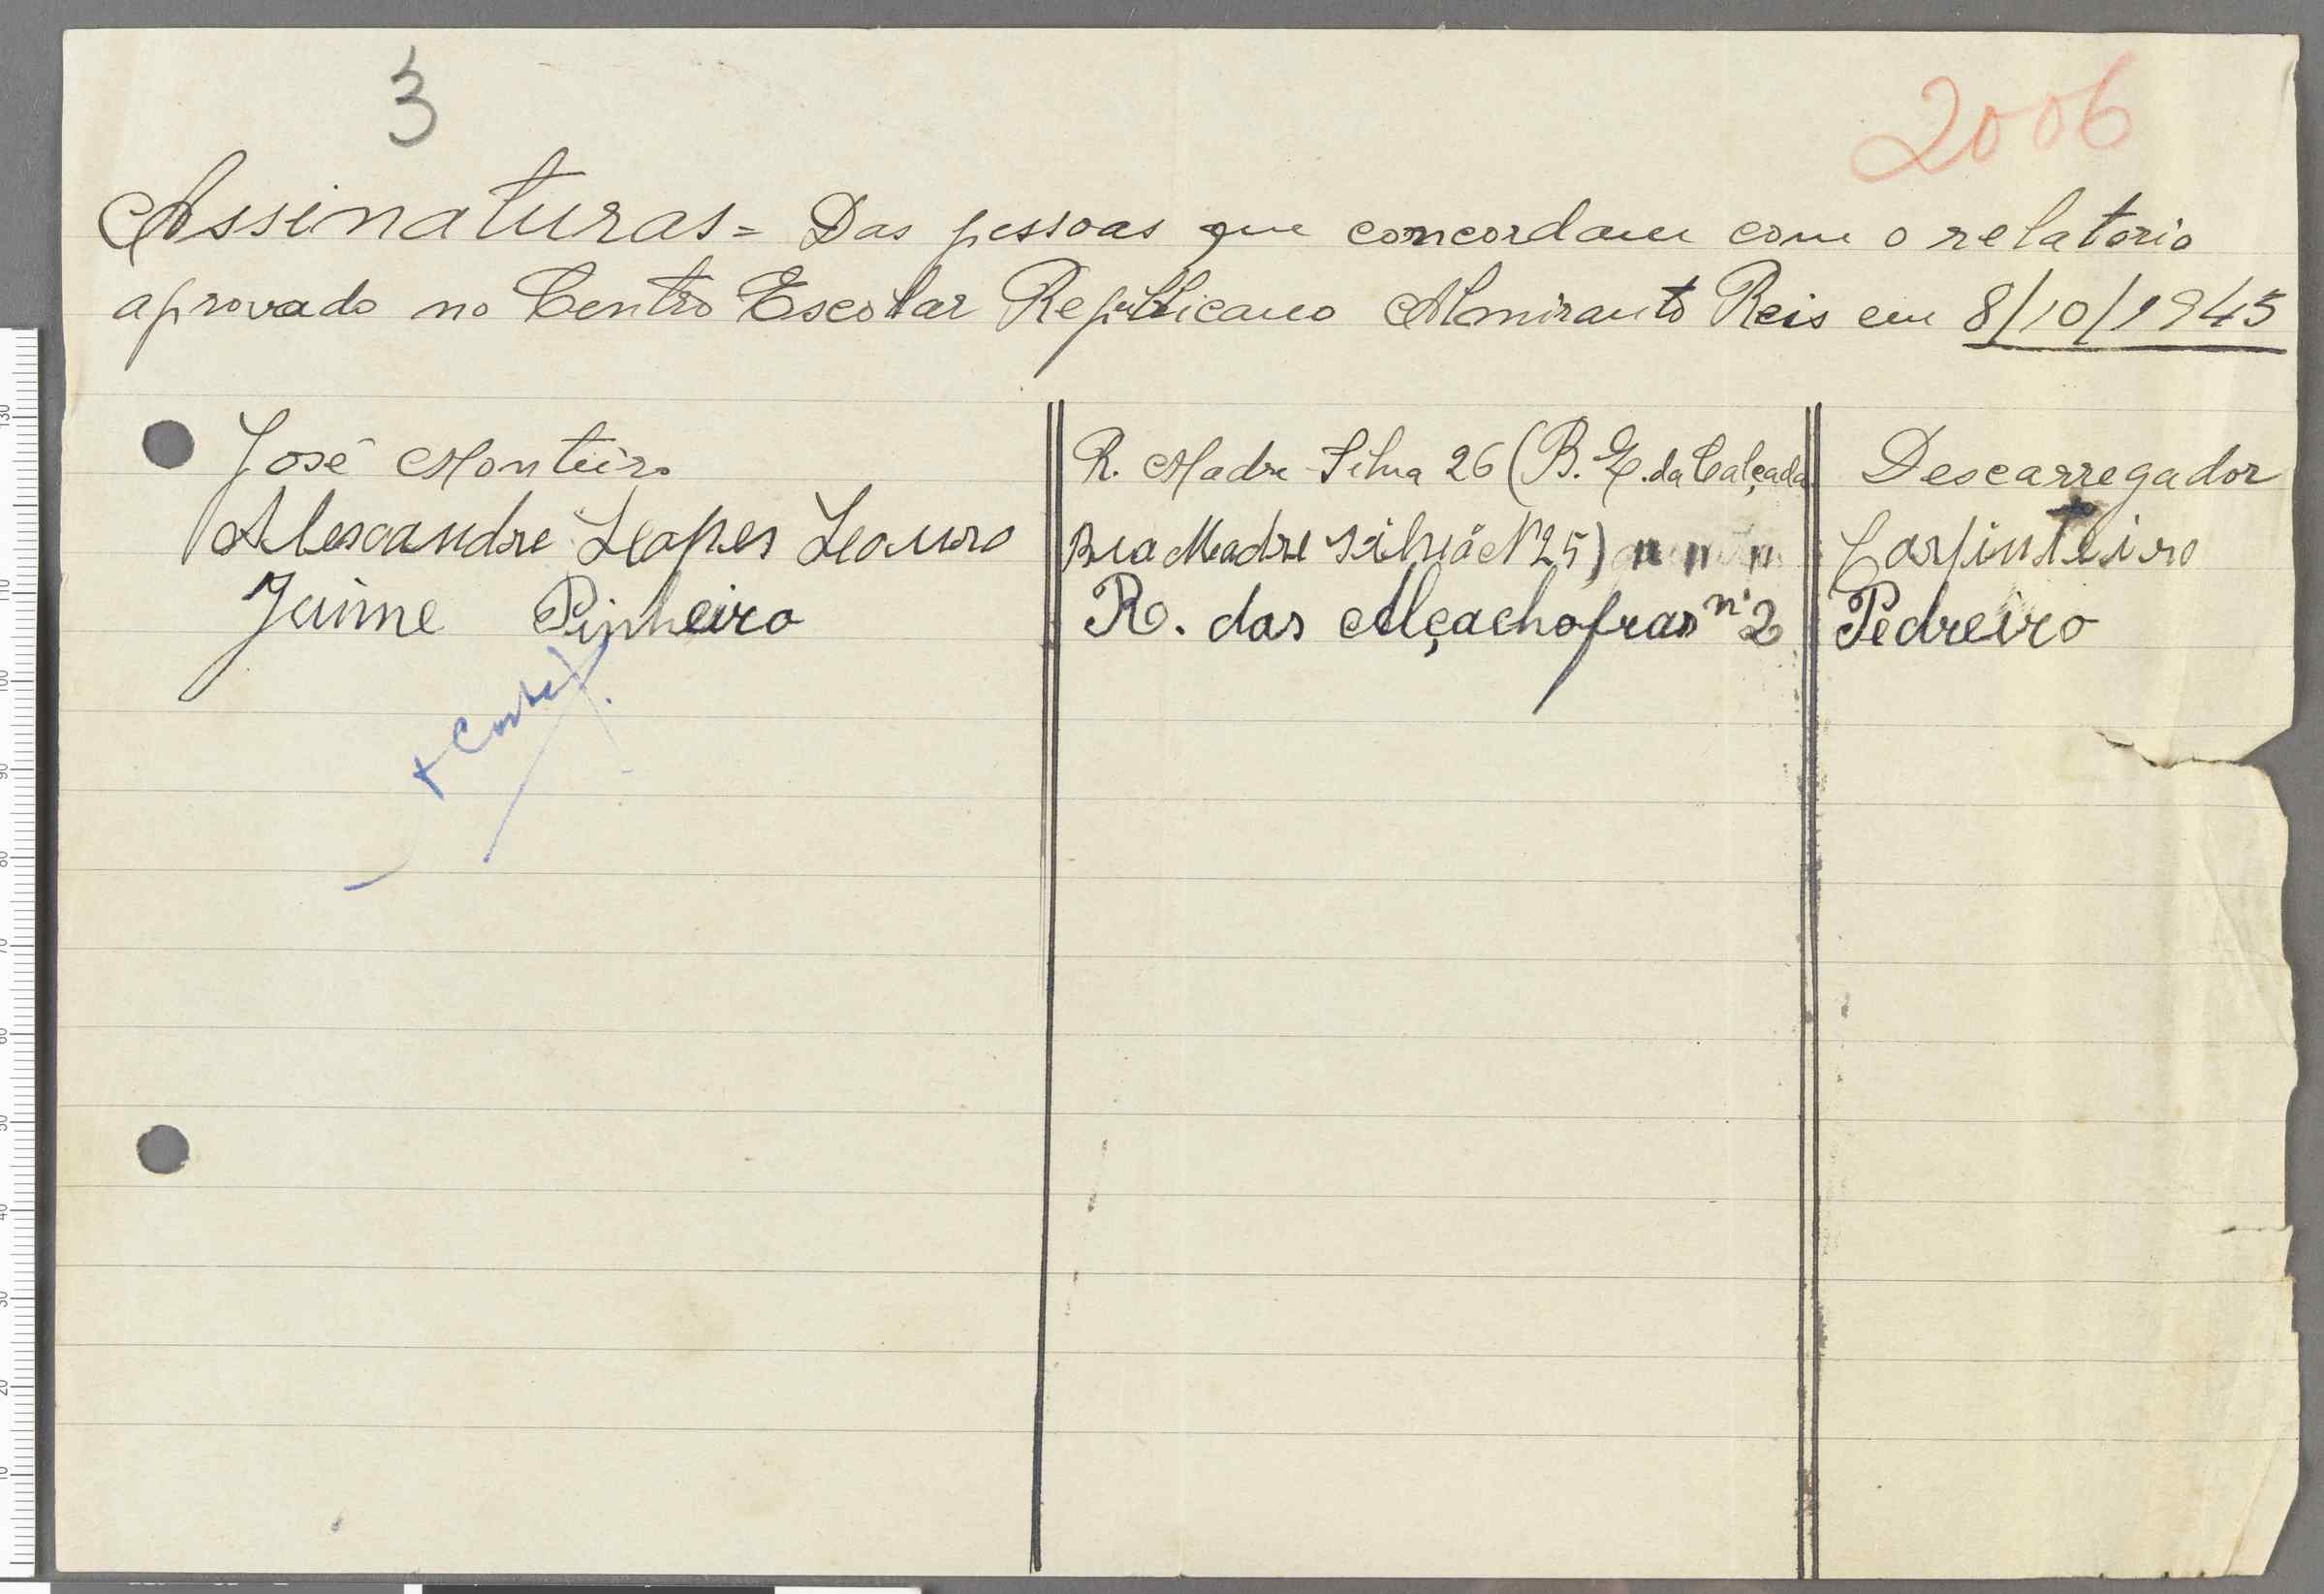 3
2006
Assinaturas = Das pessoas que concordam com o relatorio
aprovado no Centro Escolar Republicano Almirante Reis em 8/10/1945
José Monteiro R. Madre Silva 26 (B. E. da Calçada Descarregador
Alescandre Lopes Louro Rua Madre Silvia N 25) " " " Carpinteiro
Jaime Pinheiro R. das Alçachofras nº 2 Pedreiro